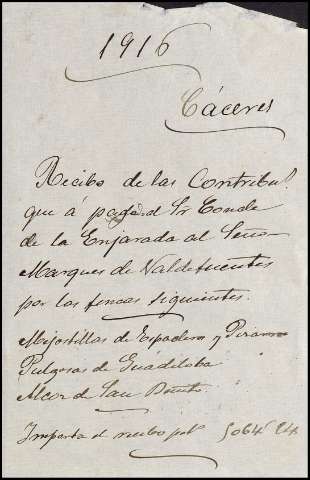 1916
Cáceres
Recibo de las Contribu.s
que á pagad Sr Conde
de la Enjarada al Señor
Marques de Valdefuentes
por las fincas siguientes.
Mijostillas de Espadero y
Pulgosas de Guadeloba
Alcor de San Benito.
Importa el recibo pal 5064 24